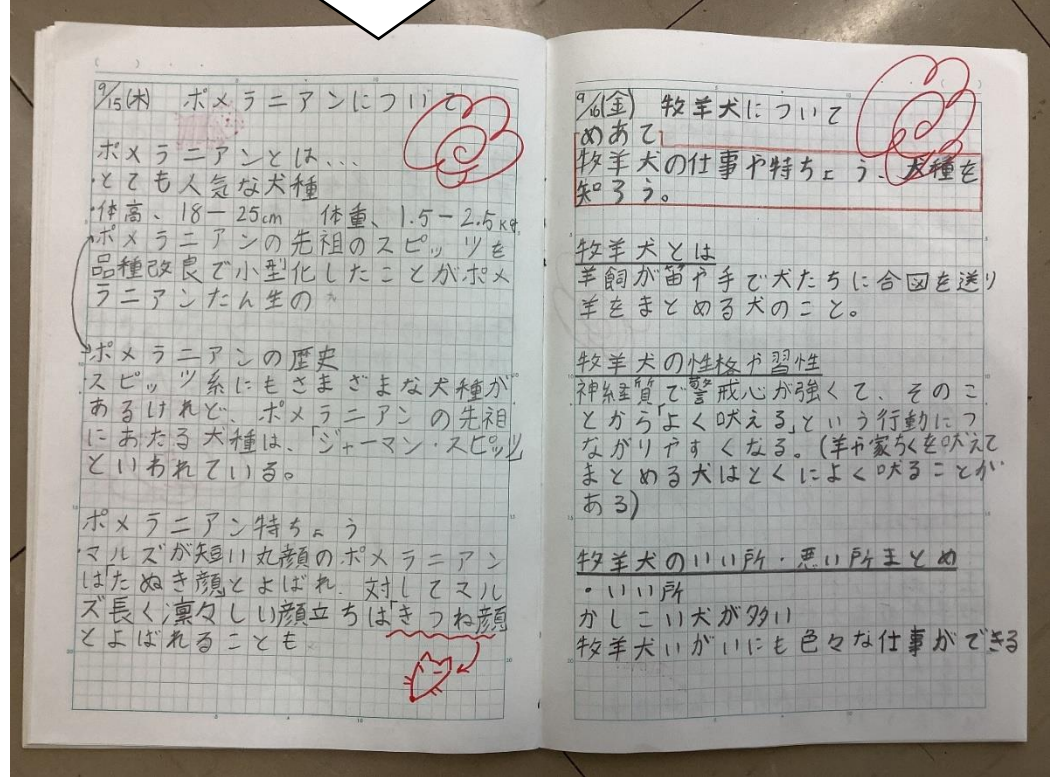 9/15(木) ポメラニアンについて
ポメラニアンとは…
・とても人気な犬種
・体高、18－25cm 体重、1.5－2.5kg
・ポメラニアンの先祖のスピッツを
品種改良で小型化したことがポメ
ラニアンたん生の
ポメラニアンの歴史
・スピッツ系にもさまざまな犬種が
あるけれど、ポメラニアンの先祖
にあたる犬種は、「ジャーマン・スピッツ」
といわれている。
ポメラニアン特ちょう
・マルズが短い丸顔のポメラニアン
は「たぬき顔とよばれ、対してマル
ズ長く凛々しい顔立ちは「きつね顔
とよばれることも
9/16(金) 牧羊犬について
めあて
牧羊犬の仕事や特ちょう、犬種を
知ろう。
牧羊犬とは
羊飼が笛や手で犬たちに合図を送り
羊をまとめる犬のこと。
牧羊犬の性格や習性
神経質で警戒心が強くて、そのこ
とから「よく吠える」という行動につ
ながりやすくなる。(羊や家ちくを吠えて
まとめる犬はとくによく吠ることが
ある)
牧羊犬のいい所・悪い所まとめ
・いい所
かしこい犬が多い
牧羊犬いがいにも色々な仕事ができる